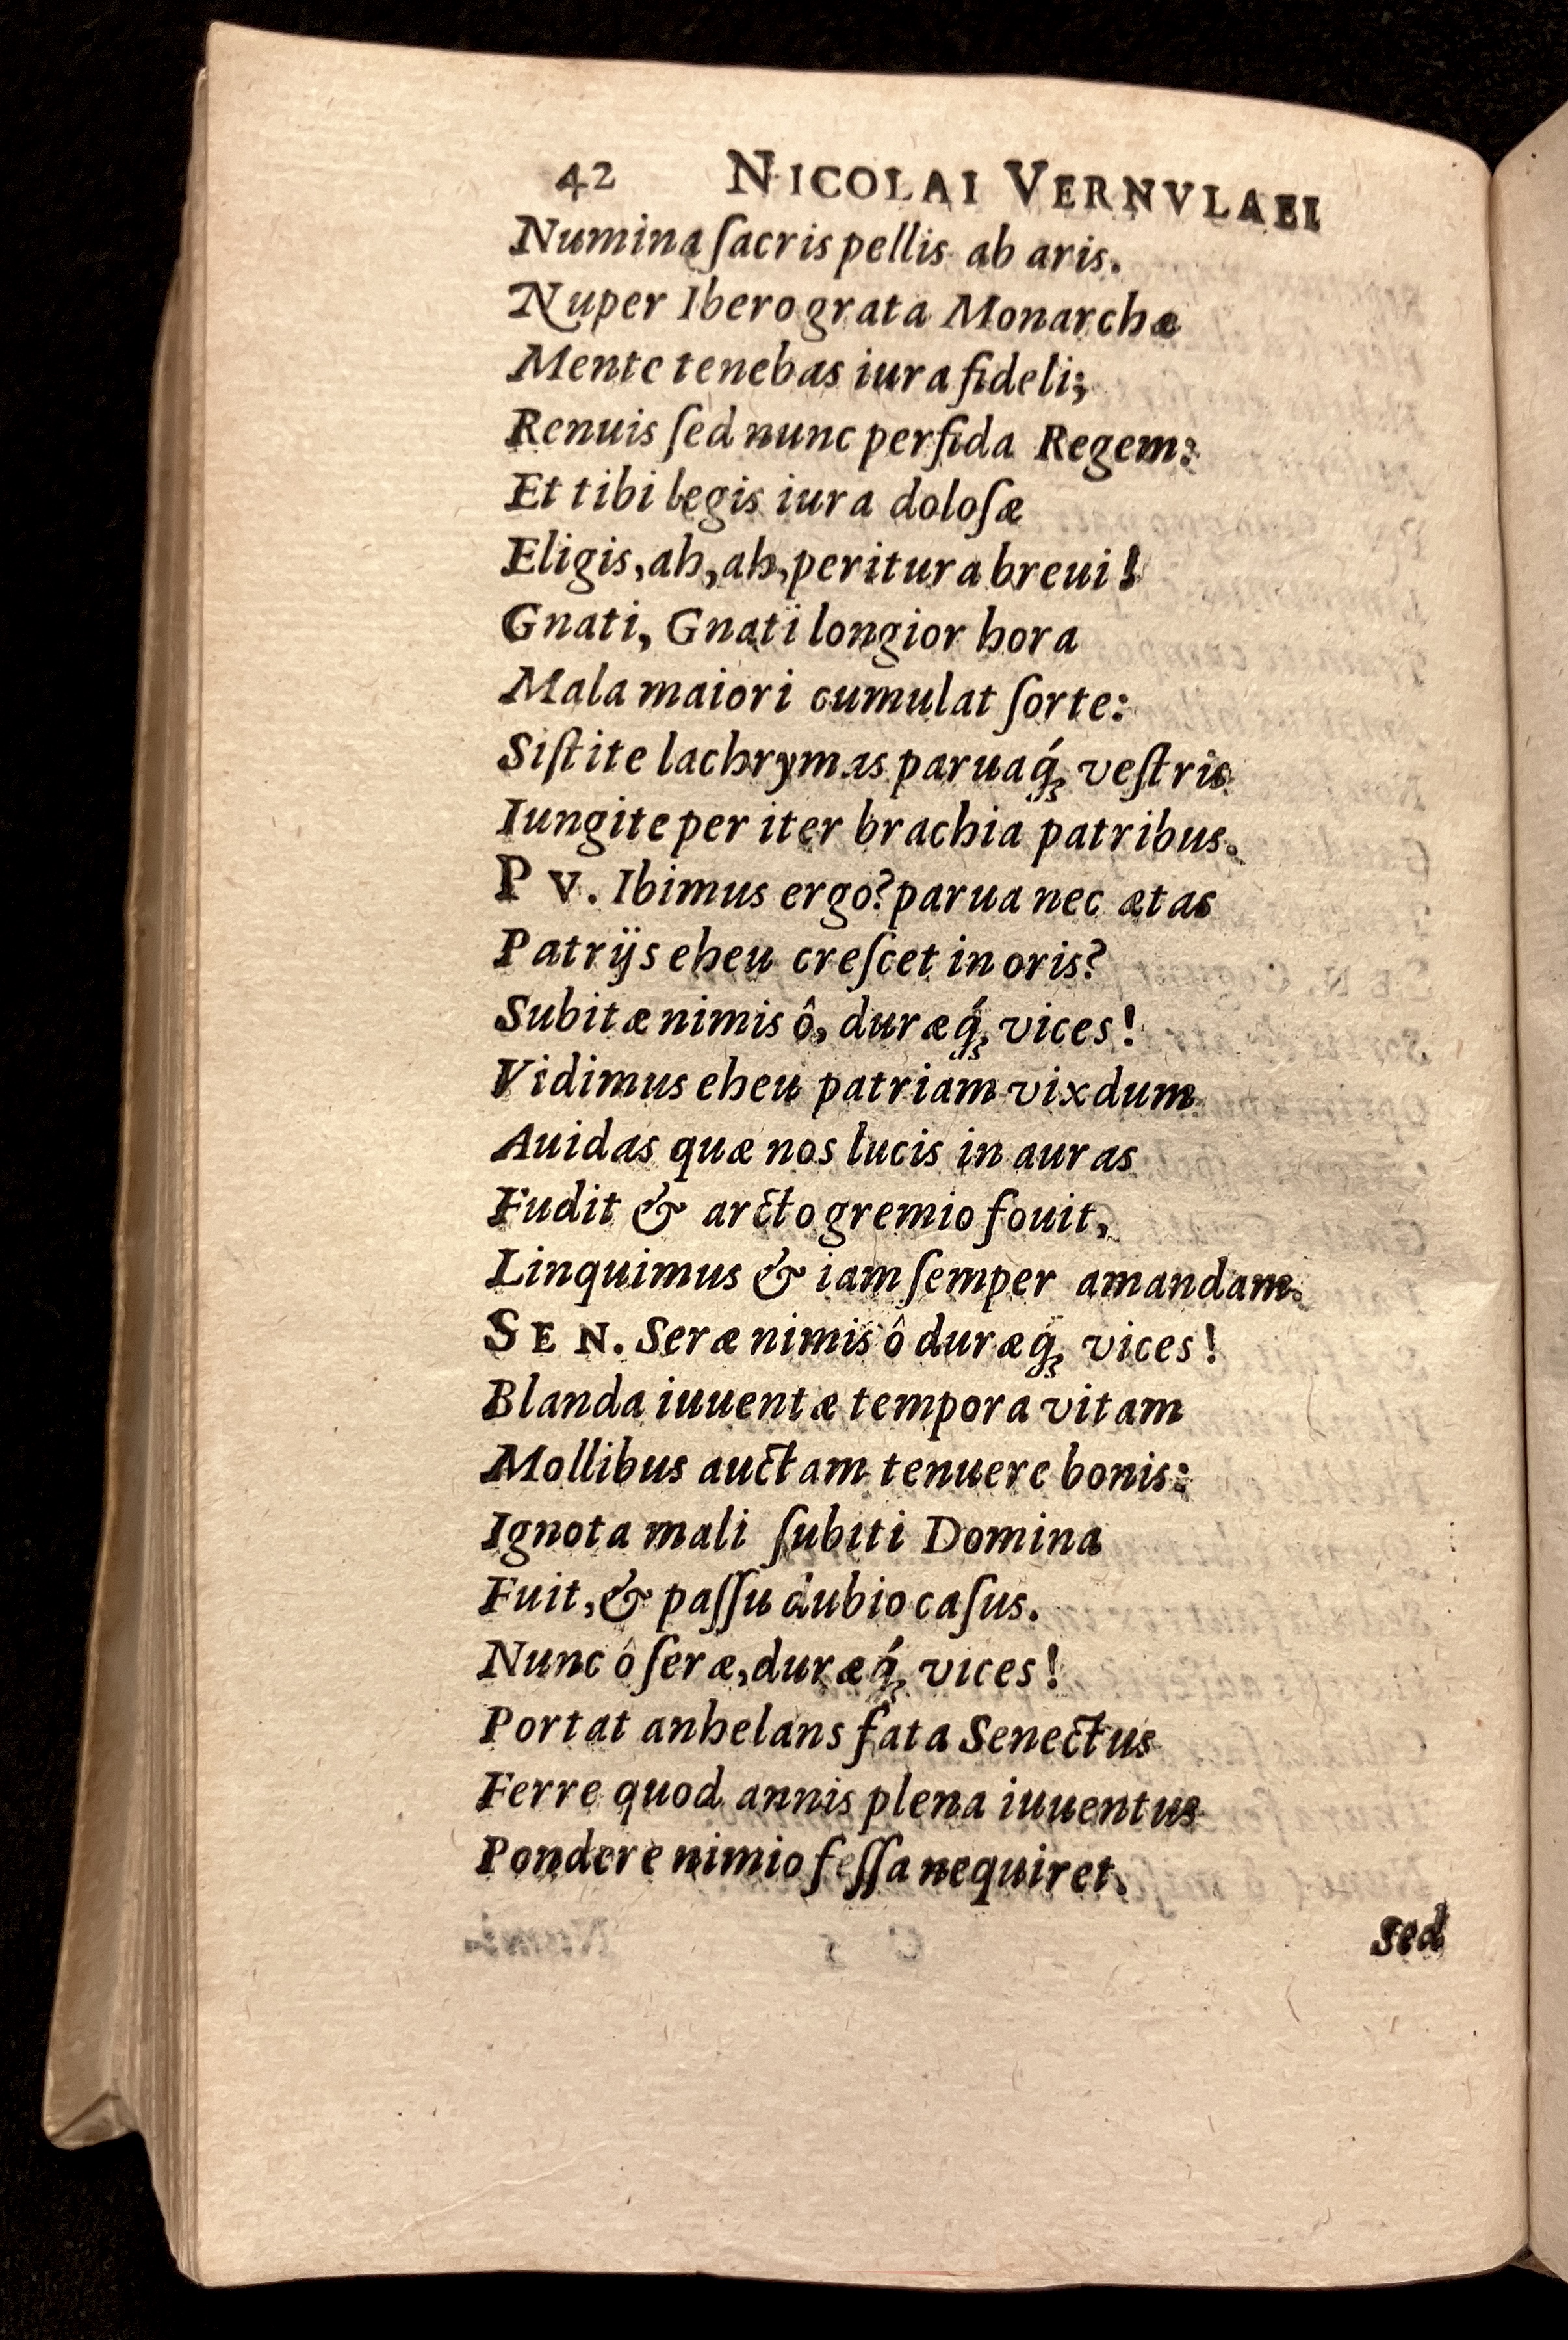 42 NICOLAI VERNVLAEI
Numina ſacris pellis ab aris.
Nuper Ibero grata Monarchæ
Mente tenebas iura fideli;
Renuis ſed nunc perfida Regem:
Et tibi legis iura doloſæ
Eligis, ah, ah, peritura breui!
Gnati, Gnati longior hora
Mala maiori cumulat ſorte:
Siſtite lachrymas paruaq́ꝫ veſtris
Iungite per iter brachia patribus.
P V. Ibimus ergo? parua nec ætas
Patrijs eheu creſcet in oris?
Subitæ nimis ô, duræq́ꝫ vices!
Vidimus eheu patriam vixdum
Auidas quæ nos lucis in auras
Fudit & arcto gremio fouit,
Linquimus & iam ſemper amandam.
SEN. Seræ nimis ô duræq́ꝫ vices!
Blanda iuuentæ tempora vitam
Mollibus auctam tenuere bonis:
Ignota mali ſubiti Domina
Fuit, & paſſu dubio caſus.
Nunc ô ſeræ, duræq́ꝫ vices!
Portat anhelans fata Senectus
Ferre quod annis plena iuuentus
Pondere nimio feſſa nequiret.
sed